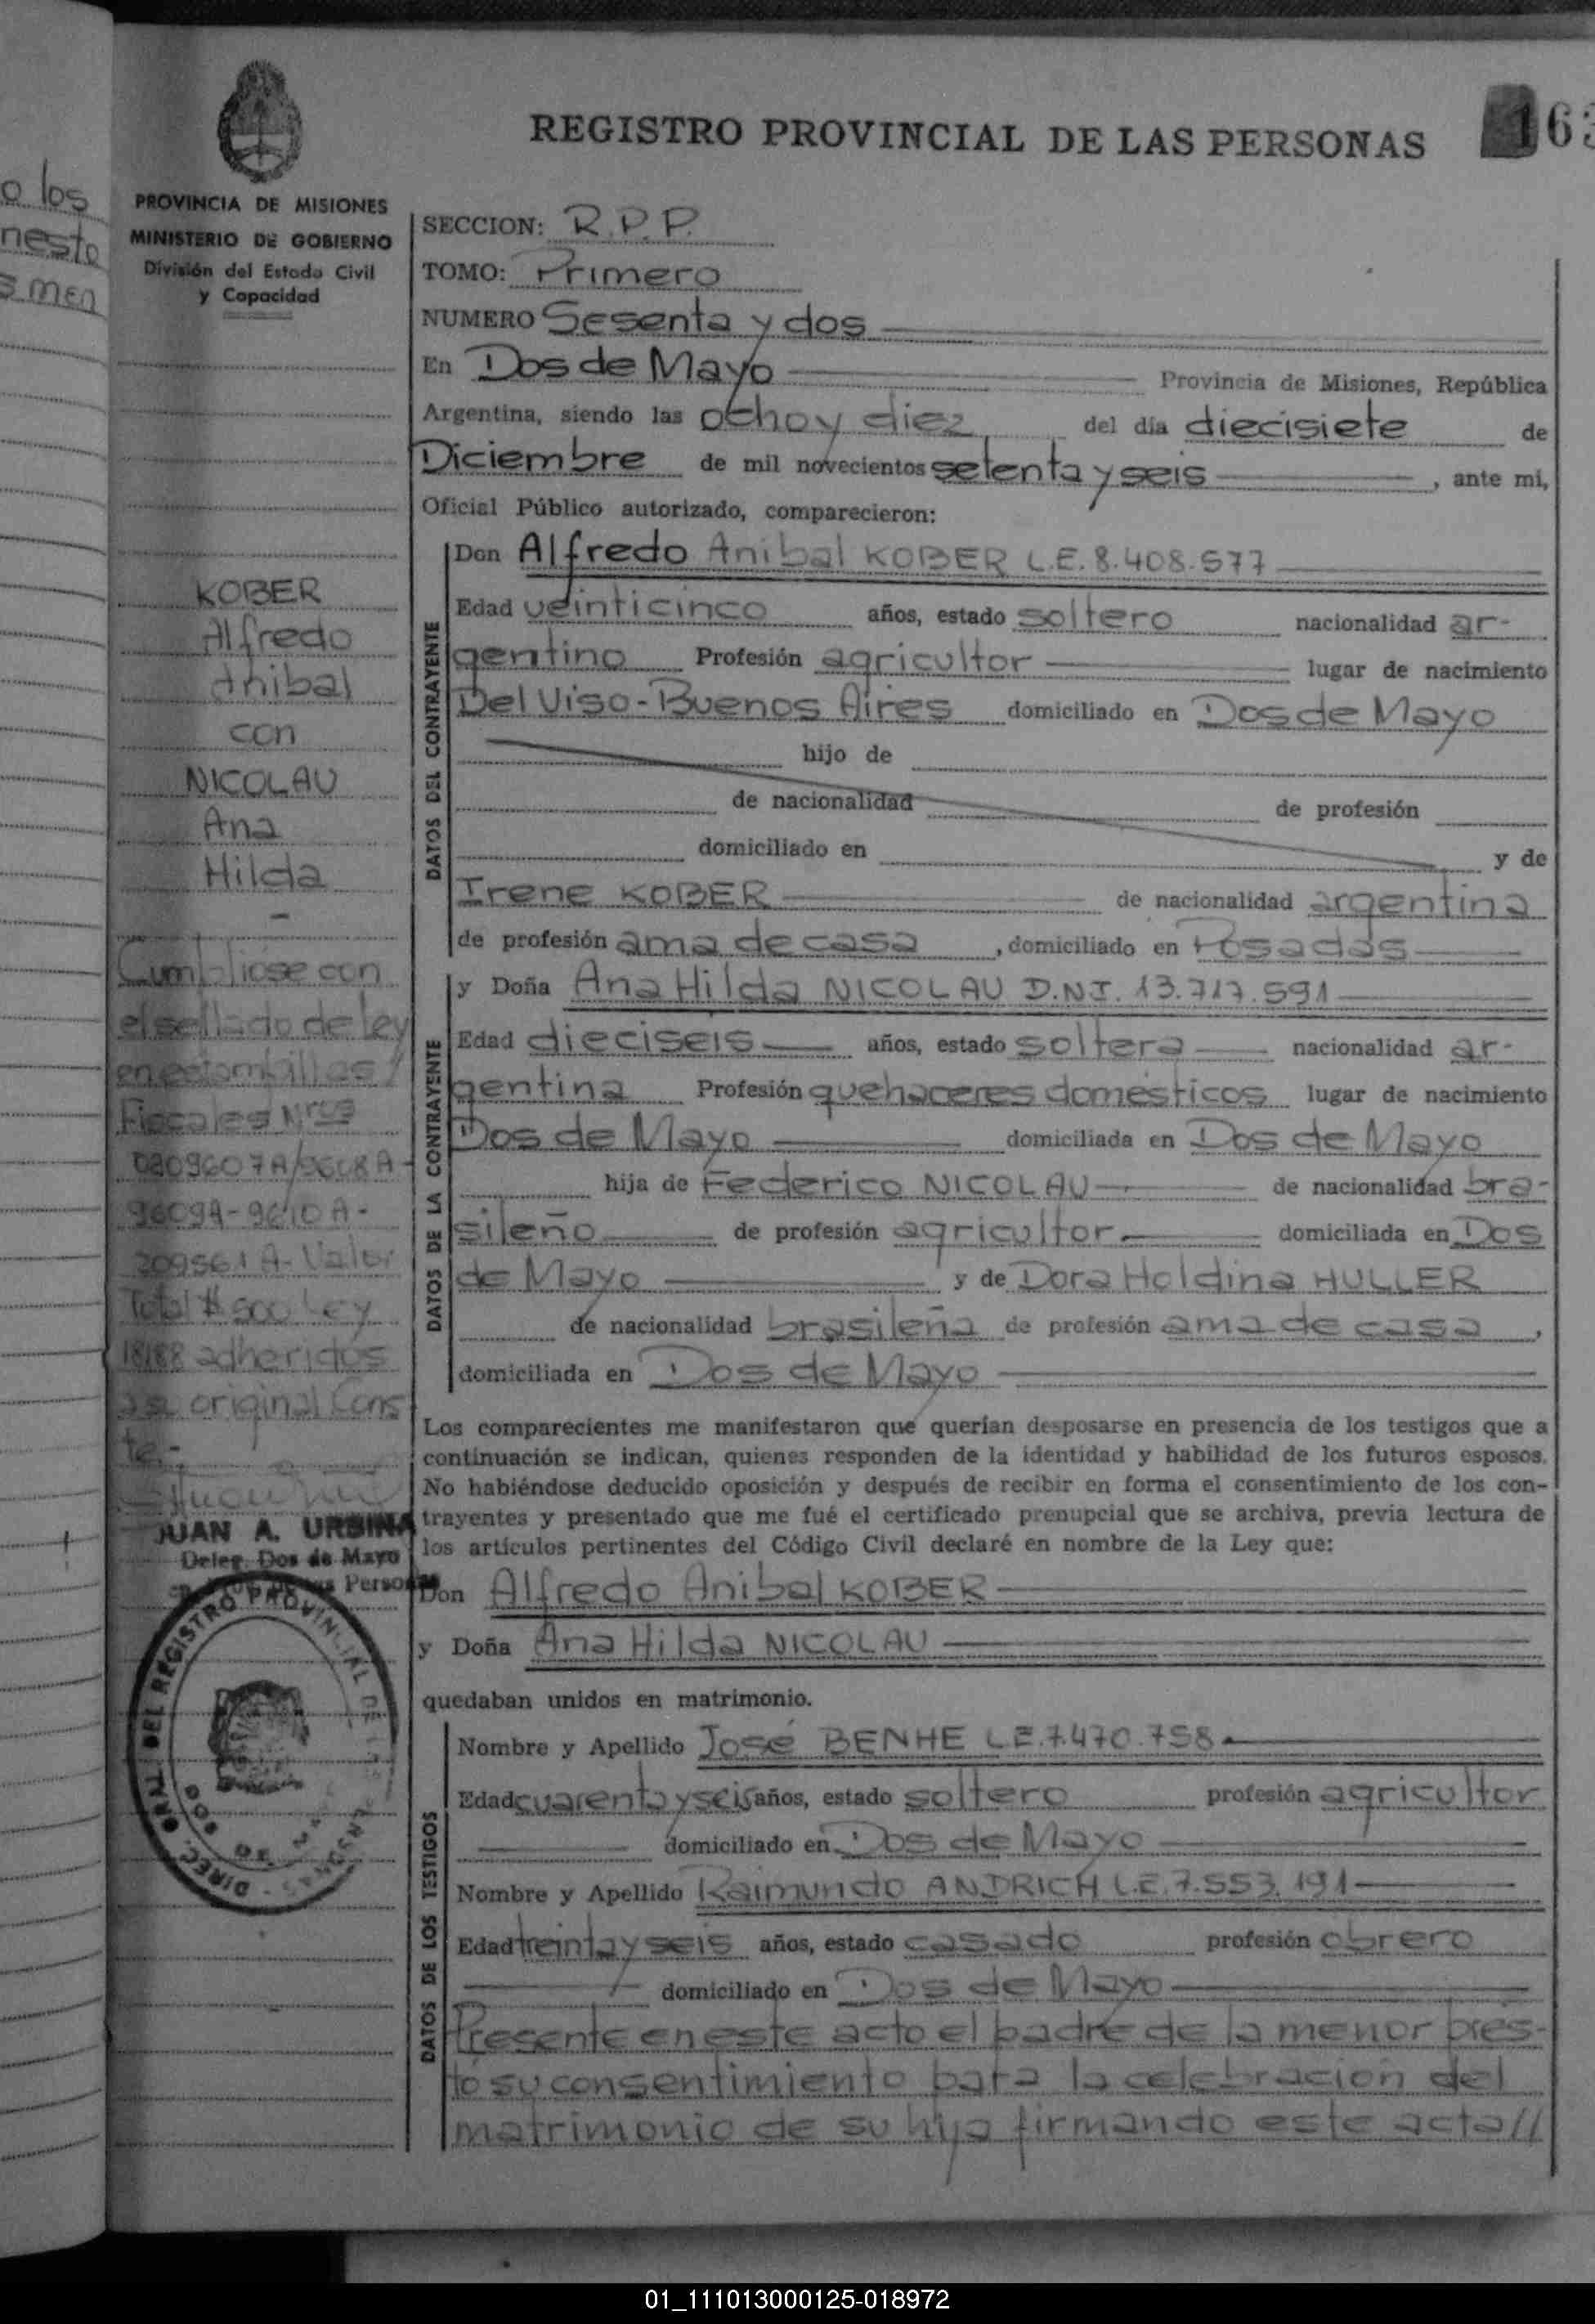 REGISTRO PROVINCIAL DE LAS PERSONAS
163
o los
nesto
s men
PROVINCIA DE MISIONES
MINISTERIO DE GOBIERNO
División del Estado Civil
y Capacidad
SECCION: R.P.P.
TOMO: Primero
NUMERO Sesenta y dos
En Dos de Mayo Provincia de Misiones, República
Argentina, siendo las ocho y diez del día diecisiete de
Diciembre de mil novecientos setenta y seis, ante mi,
Oficial Público autorizado, comparecieron:
KOBER
Alfredo
Anibal
con
NICOLAU
Ana
Hilda
-
Cumpliose con
el sellado de ley
en estampillas
Fiscales Nros
0209607A/9608A-
9609A-9610A-
209561A-Valor
Total $ 500 Ley
18188 adheridos
a su original Cons
te.-
JUAN A. URBINA
Deleg. Dos de Mayo
DIREC. GRAL. DEL REGISTRO PROVINCIAL DE LAS PERSONAS
DOS DE MAYO
DATOS DEL CONTRAYENTE
Don Alfredo Anibal KOBER L.E. 8.408.577
Edad veinticinco años, estado soltero nacionalidad ar-
gentino Profesión agricultor lugar de nacimiento
Del Viso-Buenos Aires domiciliado en Dos de Mayo
hijo de
de nacionalidad de profesión
domiciliado en y de
Irene KOBER de nacionalidad argentina
de profesión ama de casa, domiciliado en Posadas
DATOS DE LA CONTRAYENTE
y Doña Ana Hilda NICOLAU D.N.I. 13.717.591
Edad dieciseis años, estado soltera nacionalidad ar-
gentina Profesión quehaceres domésticos lugar de nacimiento
Dos de Mayo domiciliada en Dos de Mayo
hija de Federico NICOLAU de nacionalidad bra-
sileño de profesión agricultor domiciliada en Dos
de Mayo y de Dora Holdina HULLER
de nacionalidad brasileña de profesión ama de casa,
domiciliada en Dos de Mayo
Los comparecientes me manifestaron que querían desposarse en presencia de los testigos que a
continuación se indican, quienes responden de la identidad y habilidad de los futuros esposos.
No habiéndose deducido oposición y después de recibir en forma el consentimiento de los con-
trayentes y presentado que me fué el certificado prenupcial que se archiva, previa lectura de
los artículos pertinentes del Código Civil declaré en nombre de la Ley que:
Don Alfredo Anibal KOBER
y Doña Ana Hilda NICOLAU
quedaban unidos en matrimonio.
DATOS DE LOS TESTIGOS
Nombre y Apellido José BENHE L.E. 7.470.758
Edad cuarenta y seis años, estado soltero profesión agricultor
domiciliado en Dos de Mayo
Nombre y Apellido Raimundo ANDRICH L.E. 7.553.191
Edad treinta y seis años, estado casado profesión obrero
domiciliado en Dos de Mayo
Presente en este acto el padre de la menor pres-
tó su consentimiento para la celebración del
matrimonio de su hija firmando este acta//
01_111013000125-018972